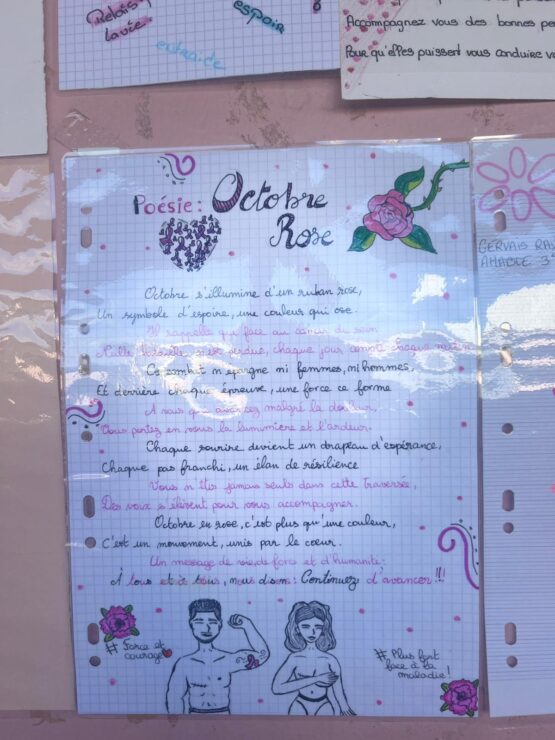 Relais
la vie
espoir
entraide
Accompagnez vous des bonnes pe
Pour qu'elles puissent vous conduire v
Poésie: Octobre
Rose
Octobre s'illumine d'un ruban rose,
Un symbole d'espoire, une couleur qui ose.
Il rappelle que face au cancer du sein
Nulle bataille n'est perdue, chaque jour compte chaque
Ce combat n'epargne ni femmes, ni hommes,
Et derrière chaque épreuve, une force ce forme
A vous qui avancez malgré la douleur,
Vous portez en vous la lumumière et l'ardeur.
Chaque sourire devient un drapeau d'espérance,
Chaque pas franchi, un élan de résilience
Vous n'êtes jamais seuls dans cette traversée,
Des voix s'élèvent pour vous accompagner.
Octobre en rose, c'est plus qu'une couleur,
C'est un mouvement, unis par le coeur.
Un message de vie, de force et d'humanité:
À tous et à tous, nous disons: Continuez d'avancer!!!
# Force et
courage
# Plus fort
face à la
maladie!
GERVAIS
AMABLE 3°